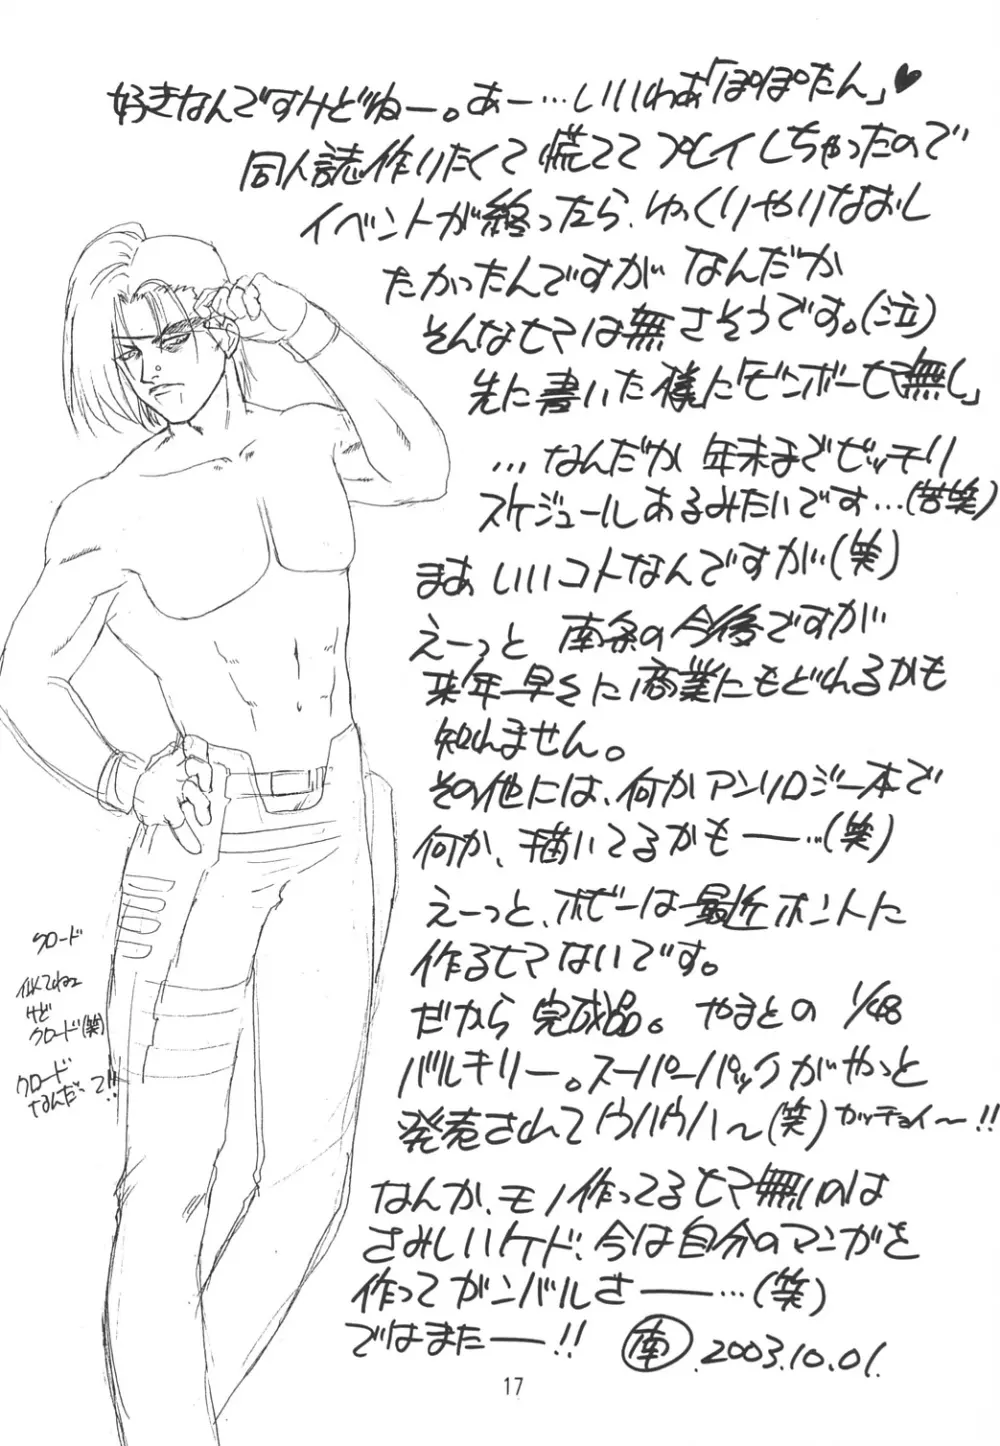 好きなんですけどねー。あー…いいわぁ「ぽぽたん」♥
同人誌作りたくて慌ててプレイしちゃったので
イベントが終ったら、ゆっくりやりなおし
たかったんですが なんだか
そんなヒマは無さそうです。(泣)
先に書いた様に「ビンボーヒマ無し」
…なんだか 年末までビッチリ
スケジュールあるみたいです…(苦笑)
まあ いいコトなんですが…(笑)
えーっと 南条の今後ですが
来年早々に商業にもどれるかも
知れません。
その他には、何かアンソロジー本で
何か、描いてるかもー…(笑)
えーっと、ホビーは最近ホントに
作るヒマないです。
だから 完成品。やまとの 1/48
バルキリー。スーパーパックがやっと
発売されてウハウハ～(笑)カッチョイー!!
なんか、モノ作ってるヒマ無いのは
さみしいケド、今は自分のマンガを
作ってガンバルさー…(笑)
ではまたー!!
南 2003.10.01.
クロード
似てねェ
けど
クロード(笑)
クロード
なんだって!!
17